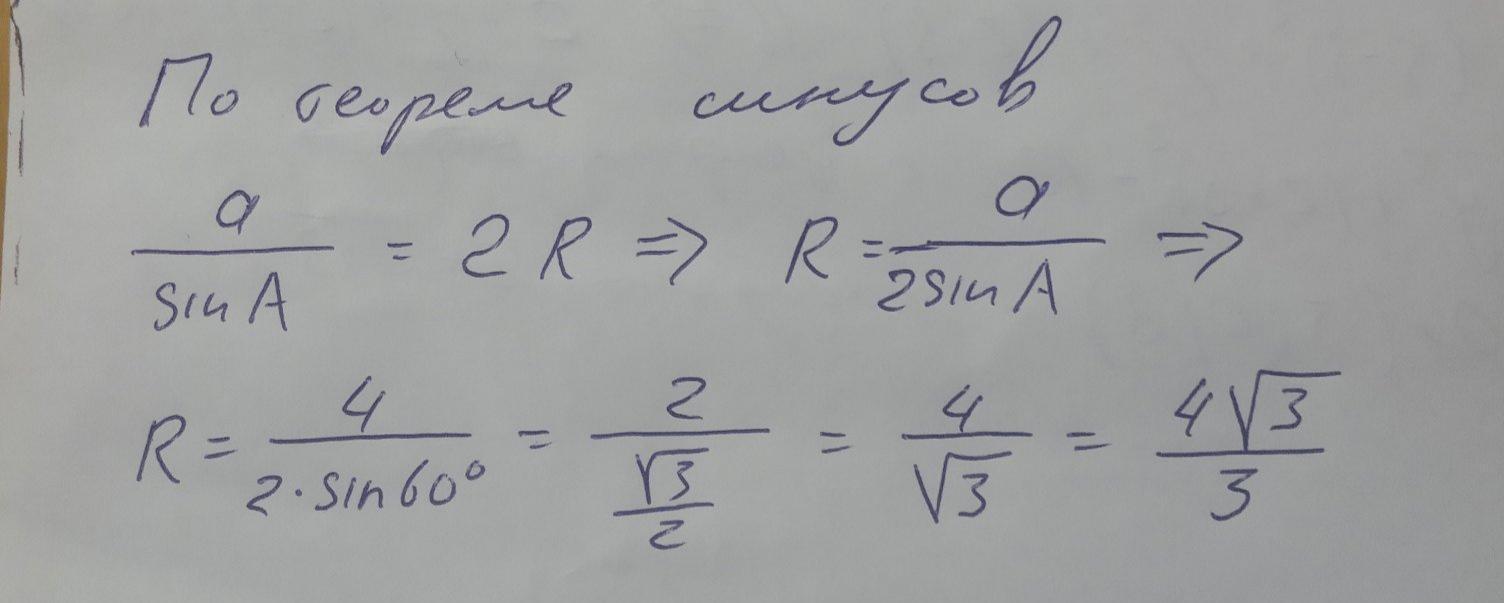 По теореме синусов
a/sin A = 2R ⇒ R = a/2sin A ⇒
R = 4/(2·sin60°) = 2/(√3/2) = 4/√3 = 4√3/3